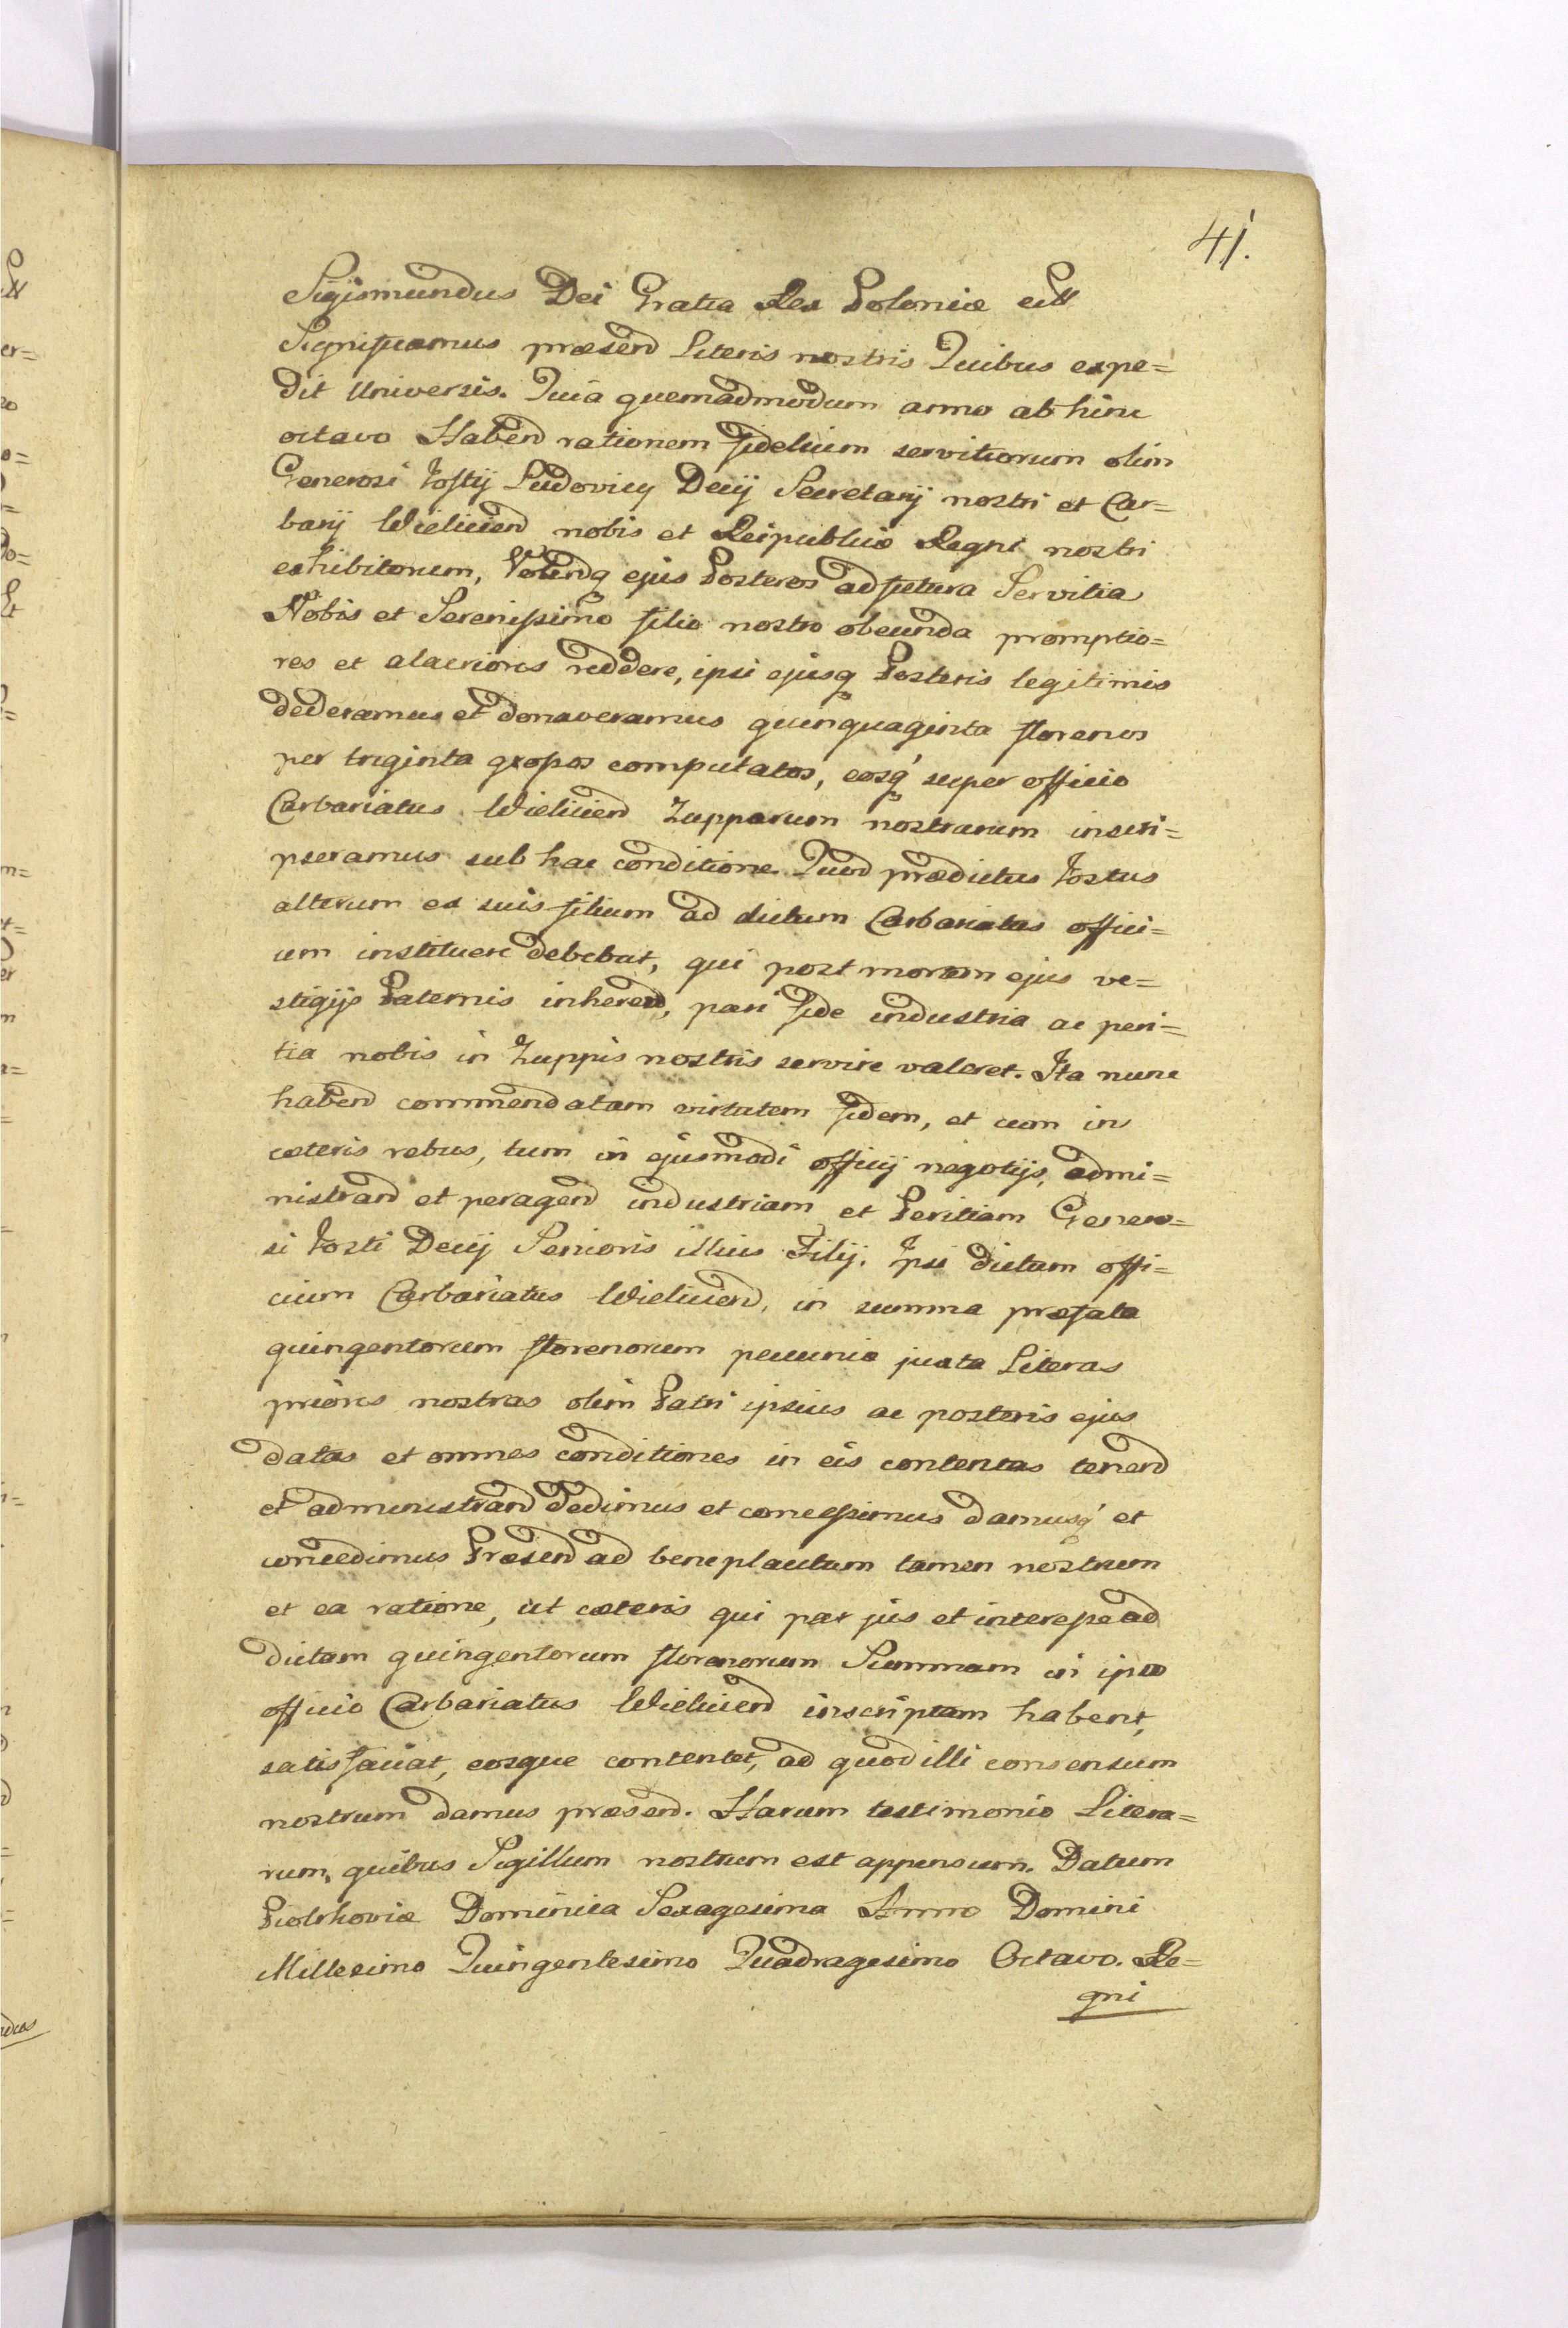 41.
Sigismundus Dei Gratia Rex Poloniæ ett
Significamus præsend Literis nostris Quibus expe=
dit Universis. Quia quemadmodum anno abhinc
octavo Habend rationem fidelium servitiorum olim
Generosi Josty Ludovicy Decij Secretarij nostri et Car=
barij Wieliciend nobis et Reipublicæ Regni nostri
exhibitorum, Volendq ejus Posteros ad futura Servitia
Nobis et Serenissimo filio nostro obeunda promptio=
res et alacriores reddere, ipsi ejusq Posteris legitimis
dederamus et donaveramus quinquaginta florenos
per triginta grossos computatos, eosq super officio
Carbariatus Wieliciend Zupparum nostrarum inscri=
pseramus sub hac conditione. Quod prædictus Jostus
alterum ex suis filium ad dictum Carbariatus offici=
um instituere debebat, qui post mortem ejus ve=
stigijs Paternis inherend, pari fide industria ac peri=
tia nobis in Zuppis nostris servire valeret. Ita nunc
habend commendatam virtutem fidem, et cum in
cæteris rebus, tum in ejusmodi officij negotijs, admi=
nistrand et peragend industriam et Peritiam Genero=
si Josti Decij Senioris illius Filij. Ipsi dictum offi=
cium Carbariatus Wieliciend, in summa præfata
quingentorum florenorum pecuniæ juxta Literas
priores nostras olim Patri ipsius ac posteris ejus
datas et omnes conditiones in eis contentas tenend
et administrand dedimus et concessimus damusq et
concedimus Præsend ad beneplacitum tamen nostrum
et ea ratione, ut cæteris qui par jus et interesse ad
dictam quingentorum florenorum Summam in ipso
officio Carbariatus Wieliciend inscriptam habent,
satisfaciat, eosque contentet, ad quod illi consensum
nostrum damus præsend. Harum testimonio Litera=
rum, quibus Sigillum nostrum est appensum. Datum
Piotrkoviæ Dominica Sexagesima Anno Domini
Millesimo Quingentesimo Quadragesimo Octavo. Re=
gni